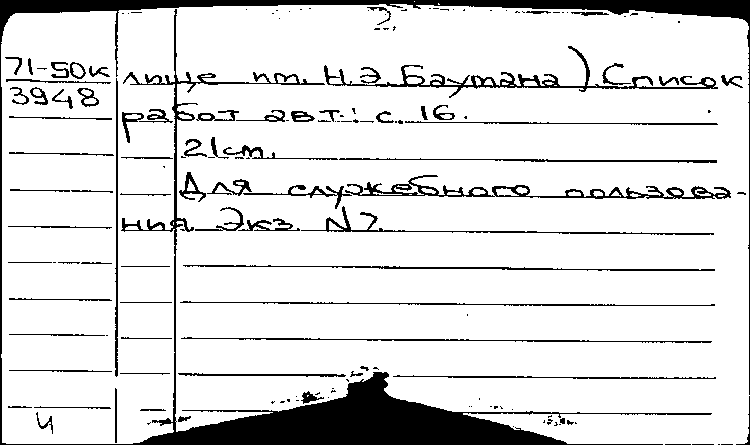 2.
71-50к лище им. Н.Э. Баумана) Список
3948
работ авт.: с. 16.
21cm.
Для служебного пользова-
ния. Экз. N7.
и